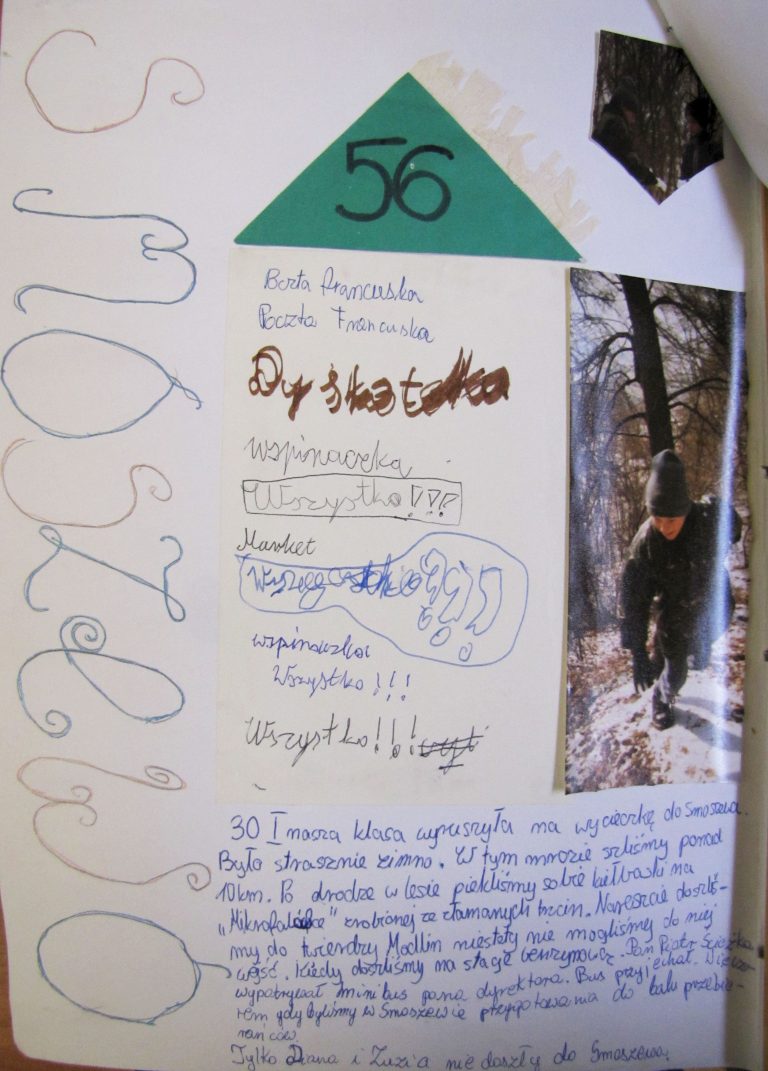 SMOSZEWO
56
Berta francuska
Poczta Francuska
Dyskoteka
wspinaczka
Wszystko!!!
Market
wspinaczka
Wszystko!!!
Wszystko!!!
30 I nasza klasa wyruszyła na wycieczkę do Smoszewa.
Było strasznie zimno. W tym mrozie szliśmy ponad
10km. Po drodze w lesie piekliśmy sobie kiełbaski na
„Mikrofalówce" zrobionej ze złamanych trzcin. Nareszcie doszliś-
my do twierdzy Modlin niestety nie mogliśmy do niej
wejść. Kiedy doszliśmy na stację benzynową. Pan Piotr Ścieżka
wypatrywał minibus pana dyrektora. Bus przyjechał. Wieczo-
rem gdy byliśmy w Smoszewie przygotowania do balu przebie-
rańców.
Tylko Diana i Zuzia nie doszły do Smoszewa.